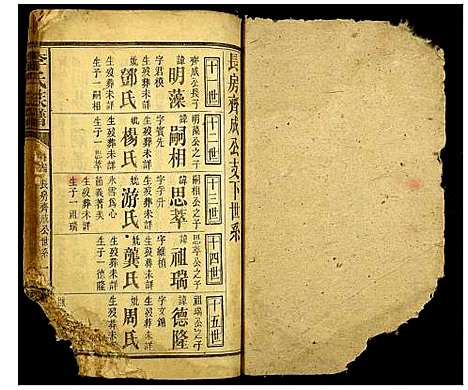 長房齊成公支下世系
十一世
齊成公長子
諱明藻
字君模
生歿葬未詳
妣鄧氏
生歿葬未詳
生子一嗣相
十二世
明藻公之子
諱嗣相
字賓先
生歿葬未詳
妣楊氏
生歿葬未詳
生子一思萃
十三世
嗣相公之子
諱思萃
字學升
生歿葬未詳
妣游氏
生子一祖瑞
十四世
思萃公之子
諱祖瑞
字維禎
生歿葬未詳
妣龔氏
生歿葬未詳
生子一德隆
十五世
祖瑞公之子
諱德隆
字文錦
生歿葬未詳
妣周氏
生歿葬未詳
李氏宗譜
長房齊成公世系 一